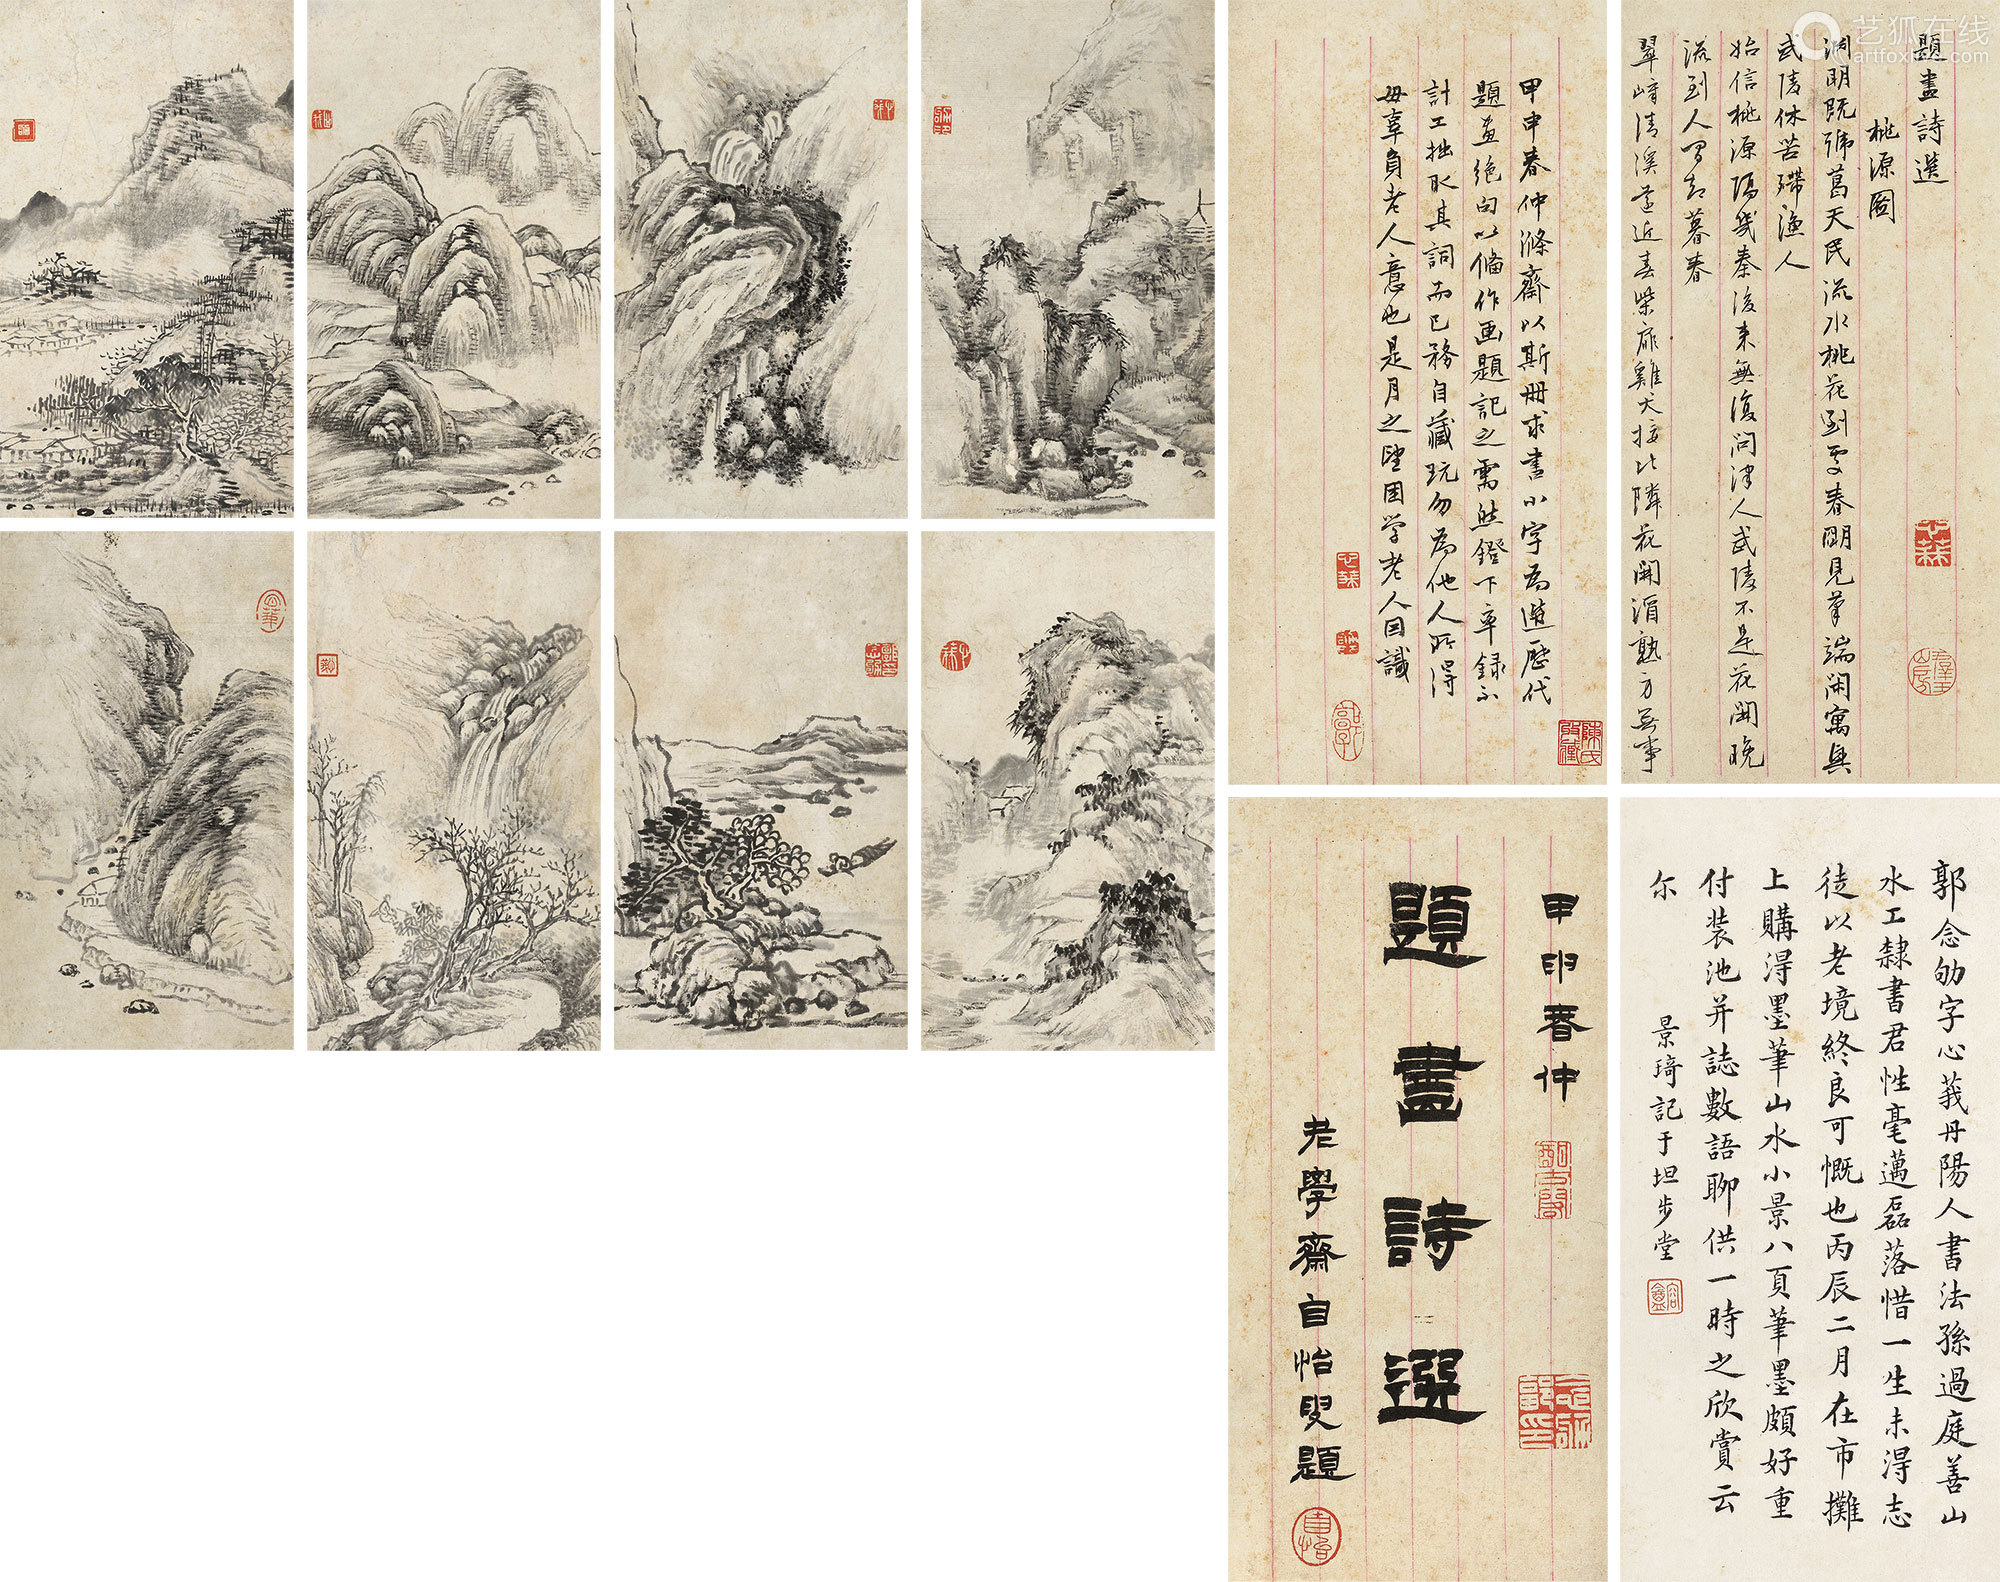 艺狐在线
artfoxlive.com
題畫詩選
桃源圖
淵明既號葛天民流水桃花到處春朙見筆端閑寓興
武陵休苦漁人
始信桃源隔幾秦後來無復問津人武陵不是花開晚
流到人間却暮春
翠嶂清溪遠近春柴扉雞犬接比隣花開酒熟方無事
甲申春仲滌齋以斯冊求書小字為選歷代
題畫絕句以備作画題記之需然鐙下率録不
計工拙取其詞而已務自藏玩勿為他人所得
毋辜負老人意也是月之望困学老人因識
甲申春仲
題畫詩選
老學齋自怡叟題
郭念劬字心莪丹陽人書法孫過庭善山
水工隸書君性毫邁磊落惜一生未得志
徒以老境終良可慨也丙辰二月在市攤
上購得墨筆山水小景八頁筆墨頗好重
付裝池并誌數語聊供一時之欣賞云
尔
景琦記于坦步堂